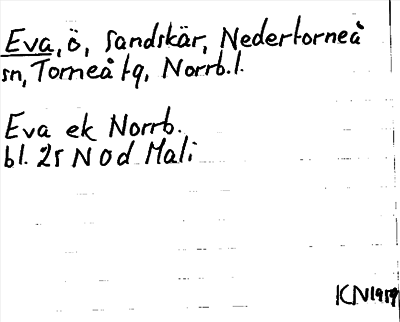 Eva, ö, Sandskär, Nedertorneå
sn, Torneå tg, Norrb.l.
Eva ek Norrb.
bl. 25 N Od Mali
KN1959